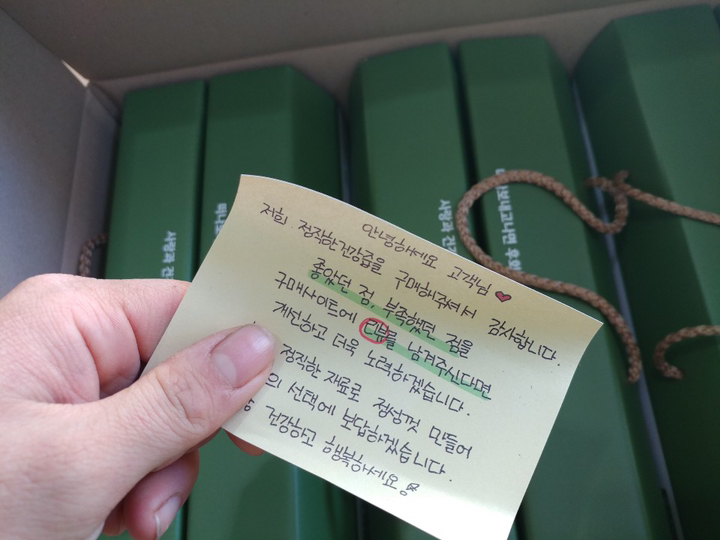 안녕하세요 고객님
저희 정직한건강즙을 구매해주셔서 감사합니다.
좋았던 점, 부족했던 점을
구매사이트에 리뷰를 남겨주신다면
개선하고 더욱 노력하겠습니다.
정직한 재료로 정성껏 만들어
선택에 보답하겠습니다.
건강하고 행복하세요
사랑과
사랑과